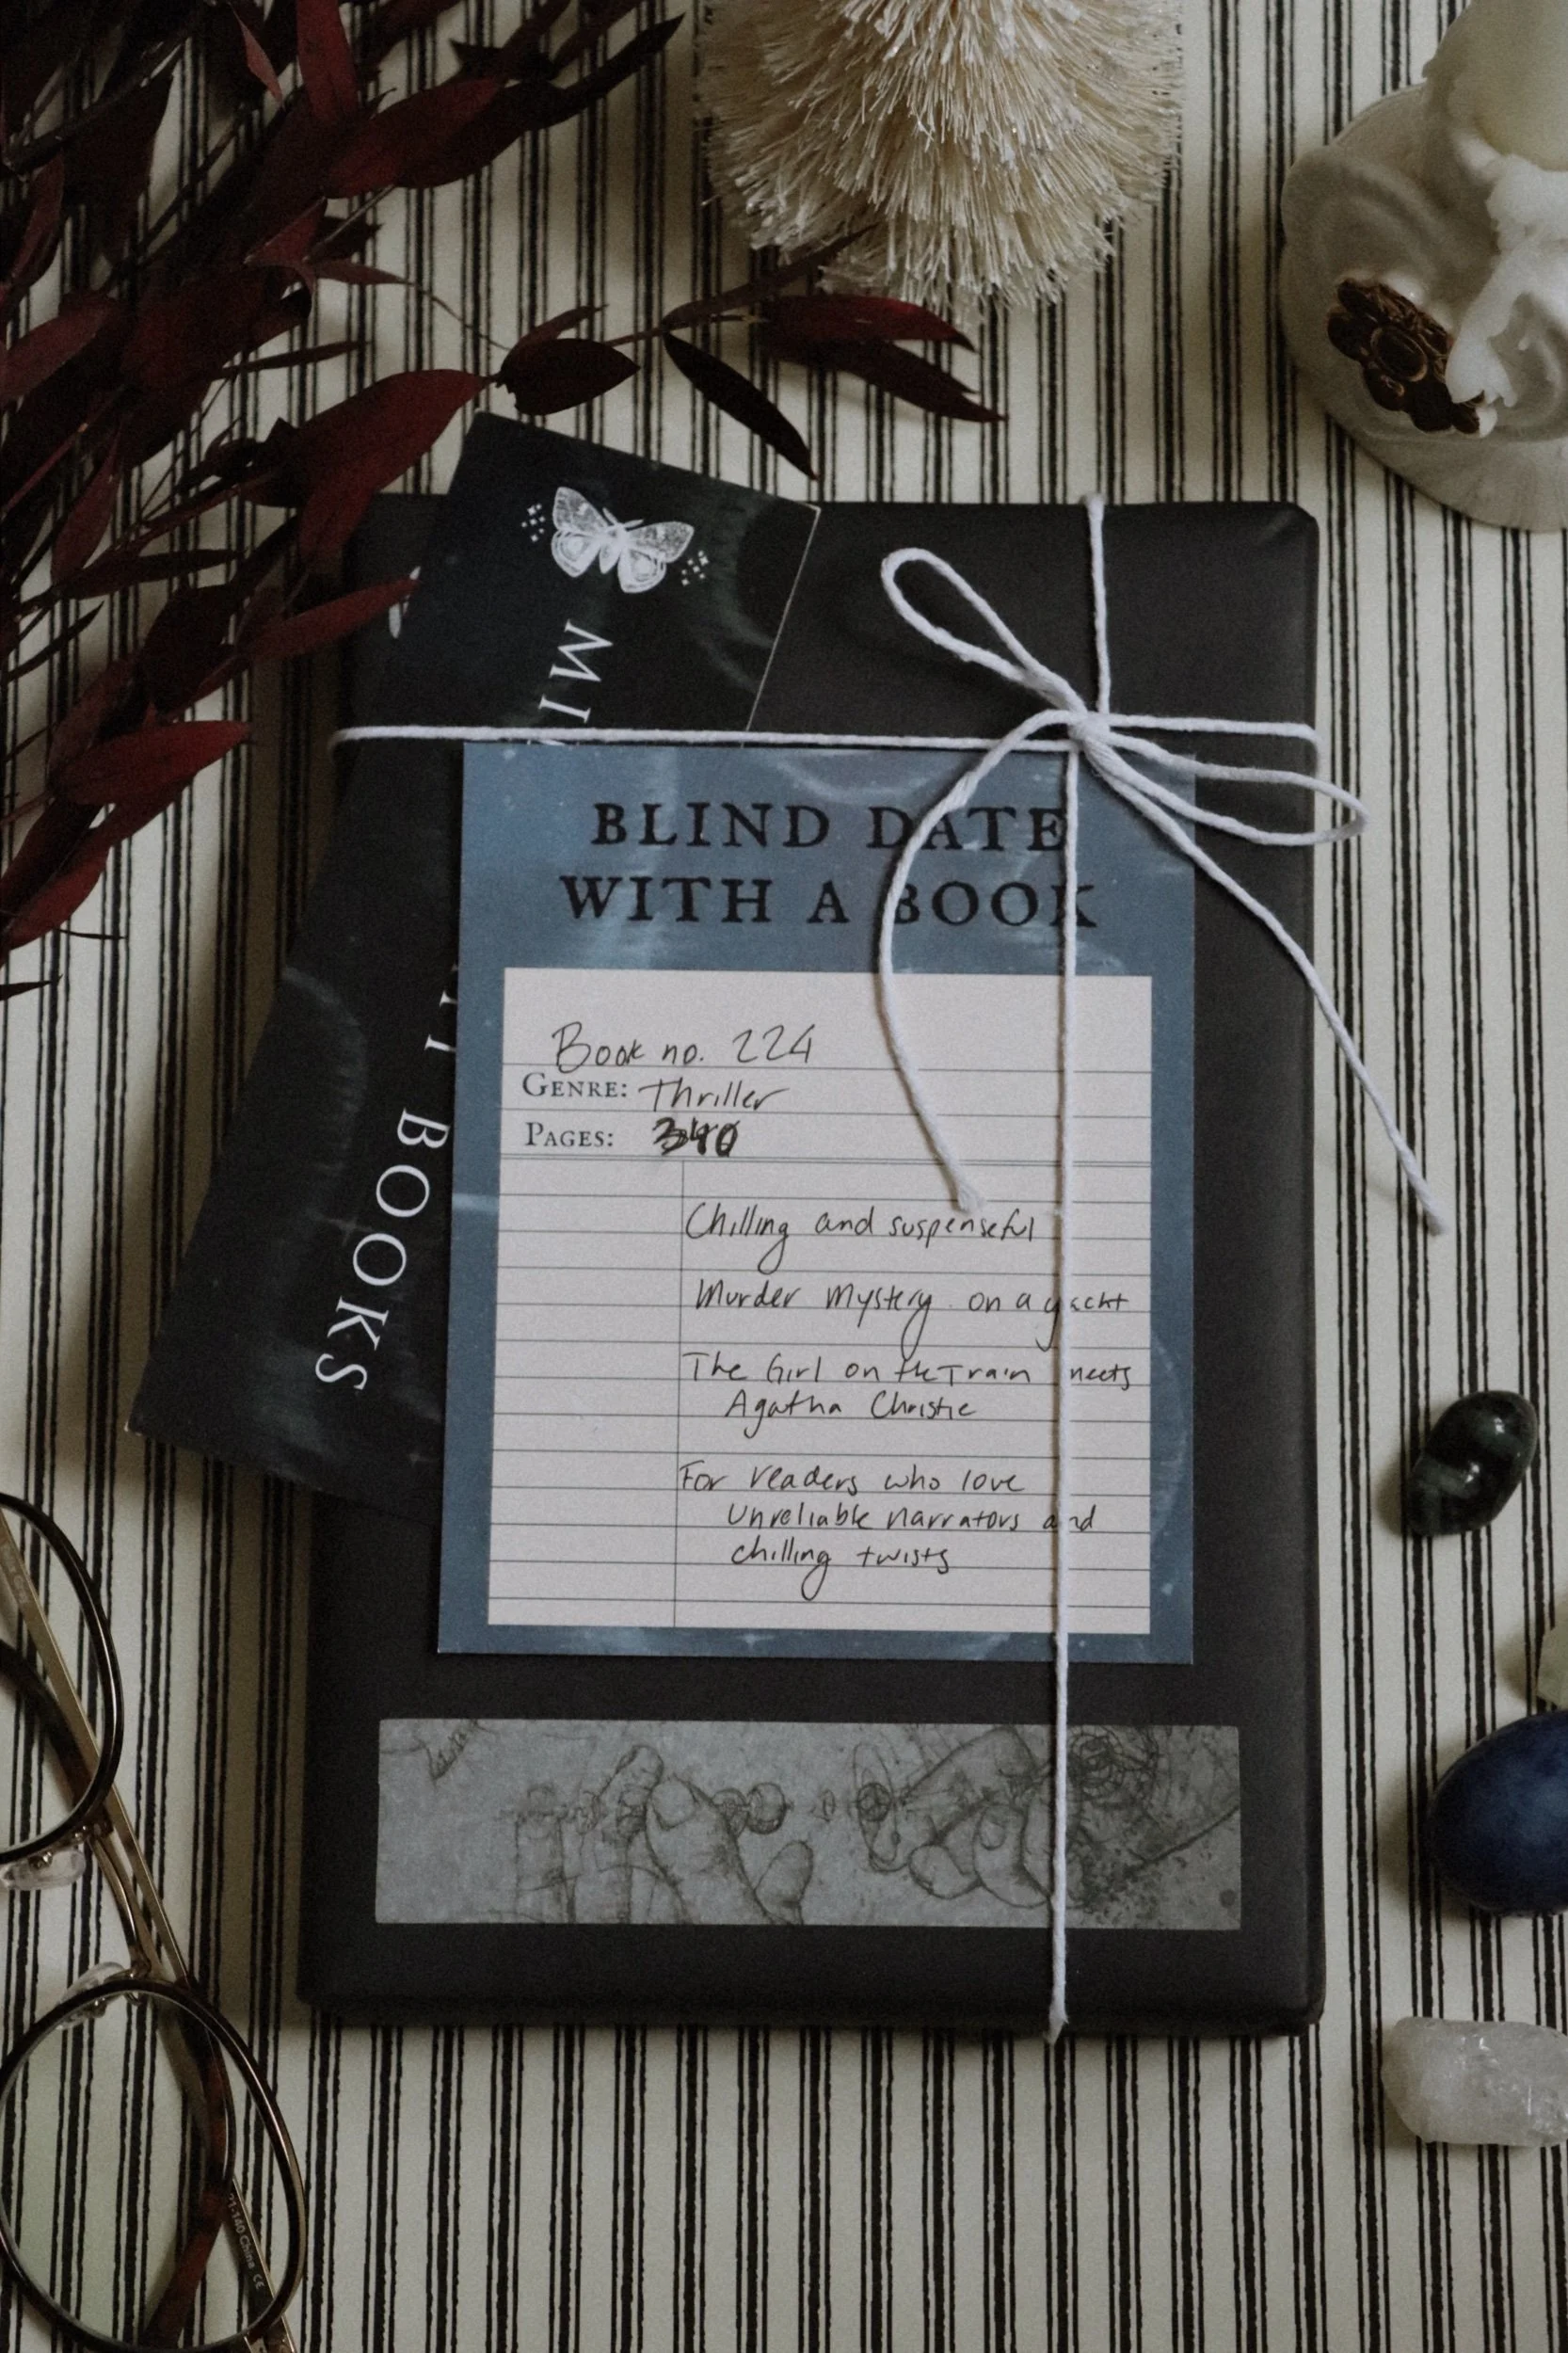 MI
BOOKS
BLIND DATE
WITH A BOOK
Book no. 224
GENRE: Thriller
PAGES: 340
Chilling and suspenseful
Murder mystery on a yacht
The Girl on the Train meets
Agatha Christie
For readers who love
unreliable narrators and
chilling twists
21-140 China CE